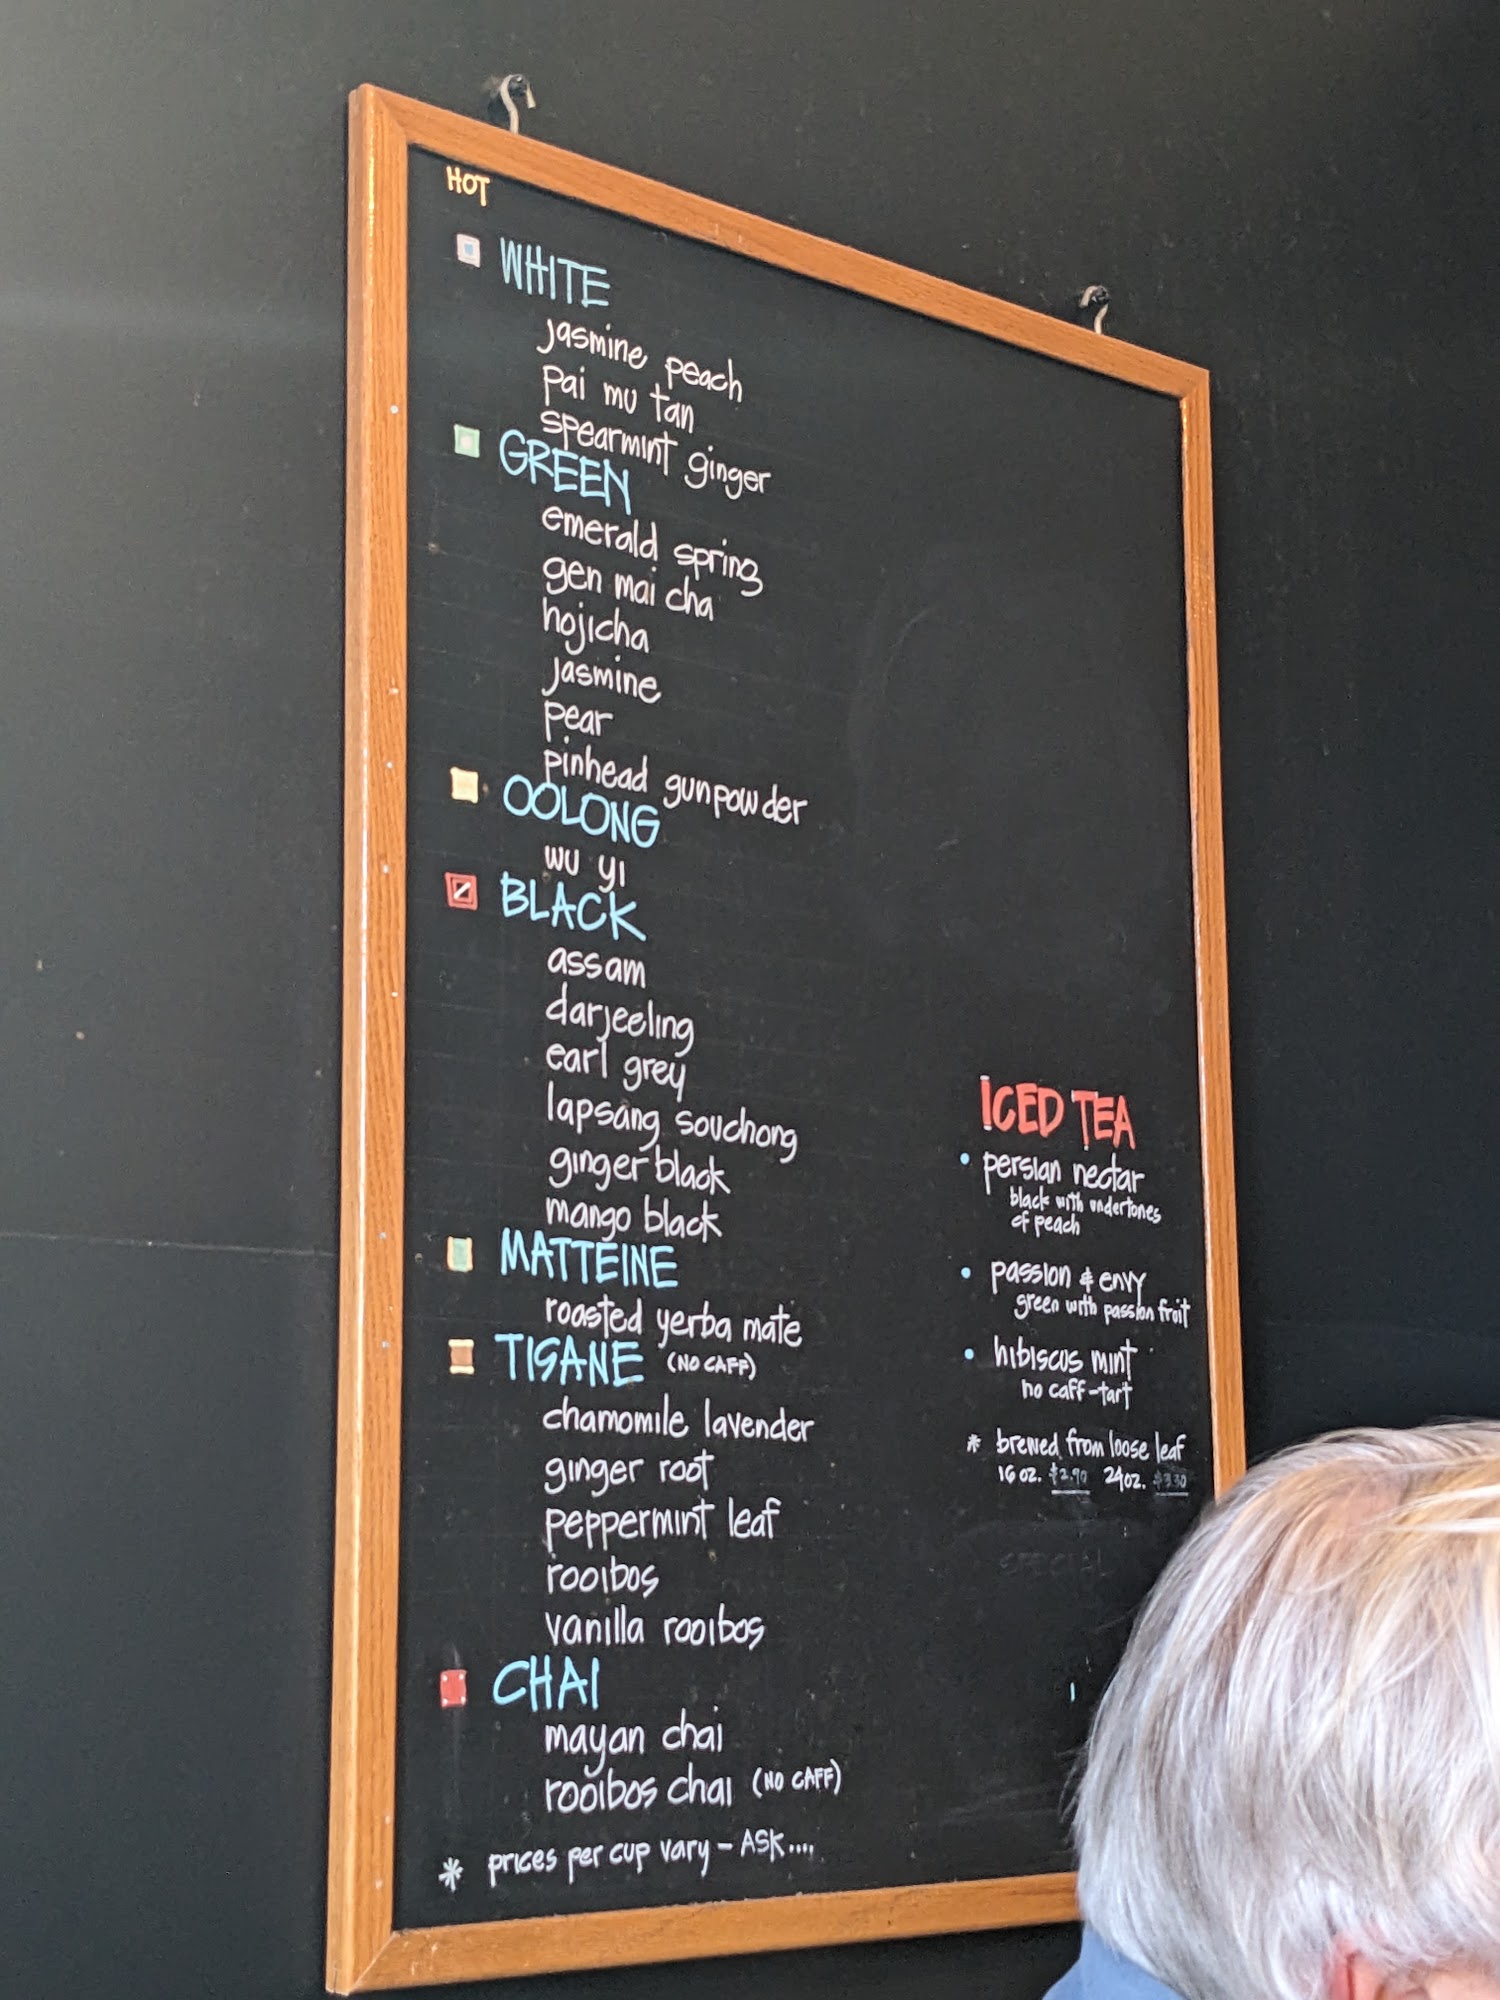 HOT
WHITE
jasmine peach
pai mu tan
spearmint ginger
GREEN
emerald spring
gen mai cha
hojicha
jasmine
pear
pinhead gunpowder
OOLONG
wu yi
BLACK
assam
darjeeling
earl grey
lapsang souchong
ginger black
mango black
MATTEINE
roasted yerba mate
TISANE (NO CAFF)
chamomile lavender
ginger root
peppermint leaf
rooibos
vanilla rooibos
CHAI
mayan chai
rooibos chai (NO CAFF)
* prices per cup vary - ASK....
ICED TEA
• persian nectar
black with undertones
of peach
• passion & envy
green with passion fruit
• hibiscus mint
no caff-tart
* brewed from loose leaf
16 oz. $2.90 24oz. $3.30
SPECIAL